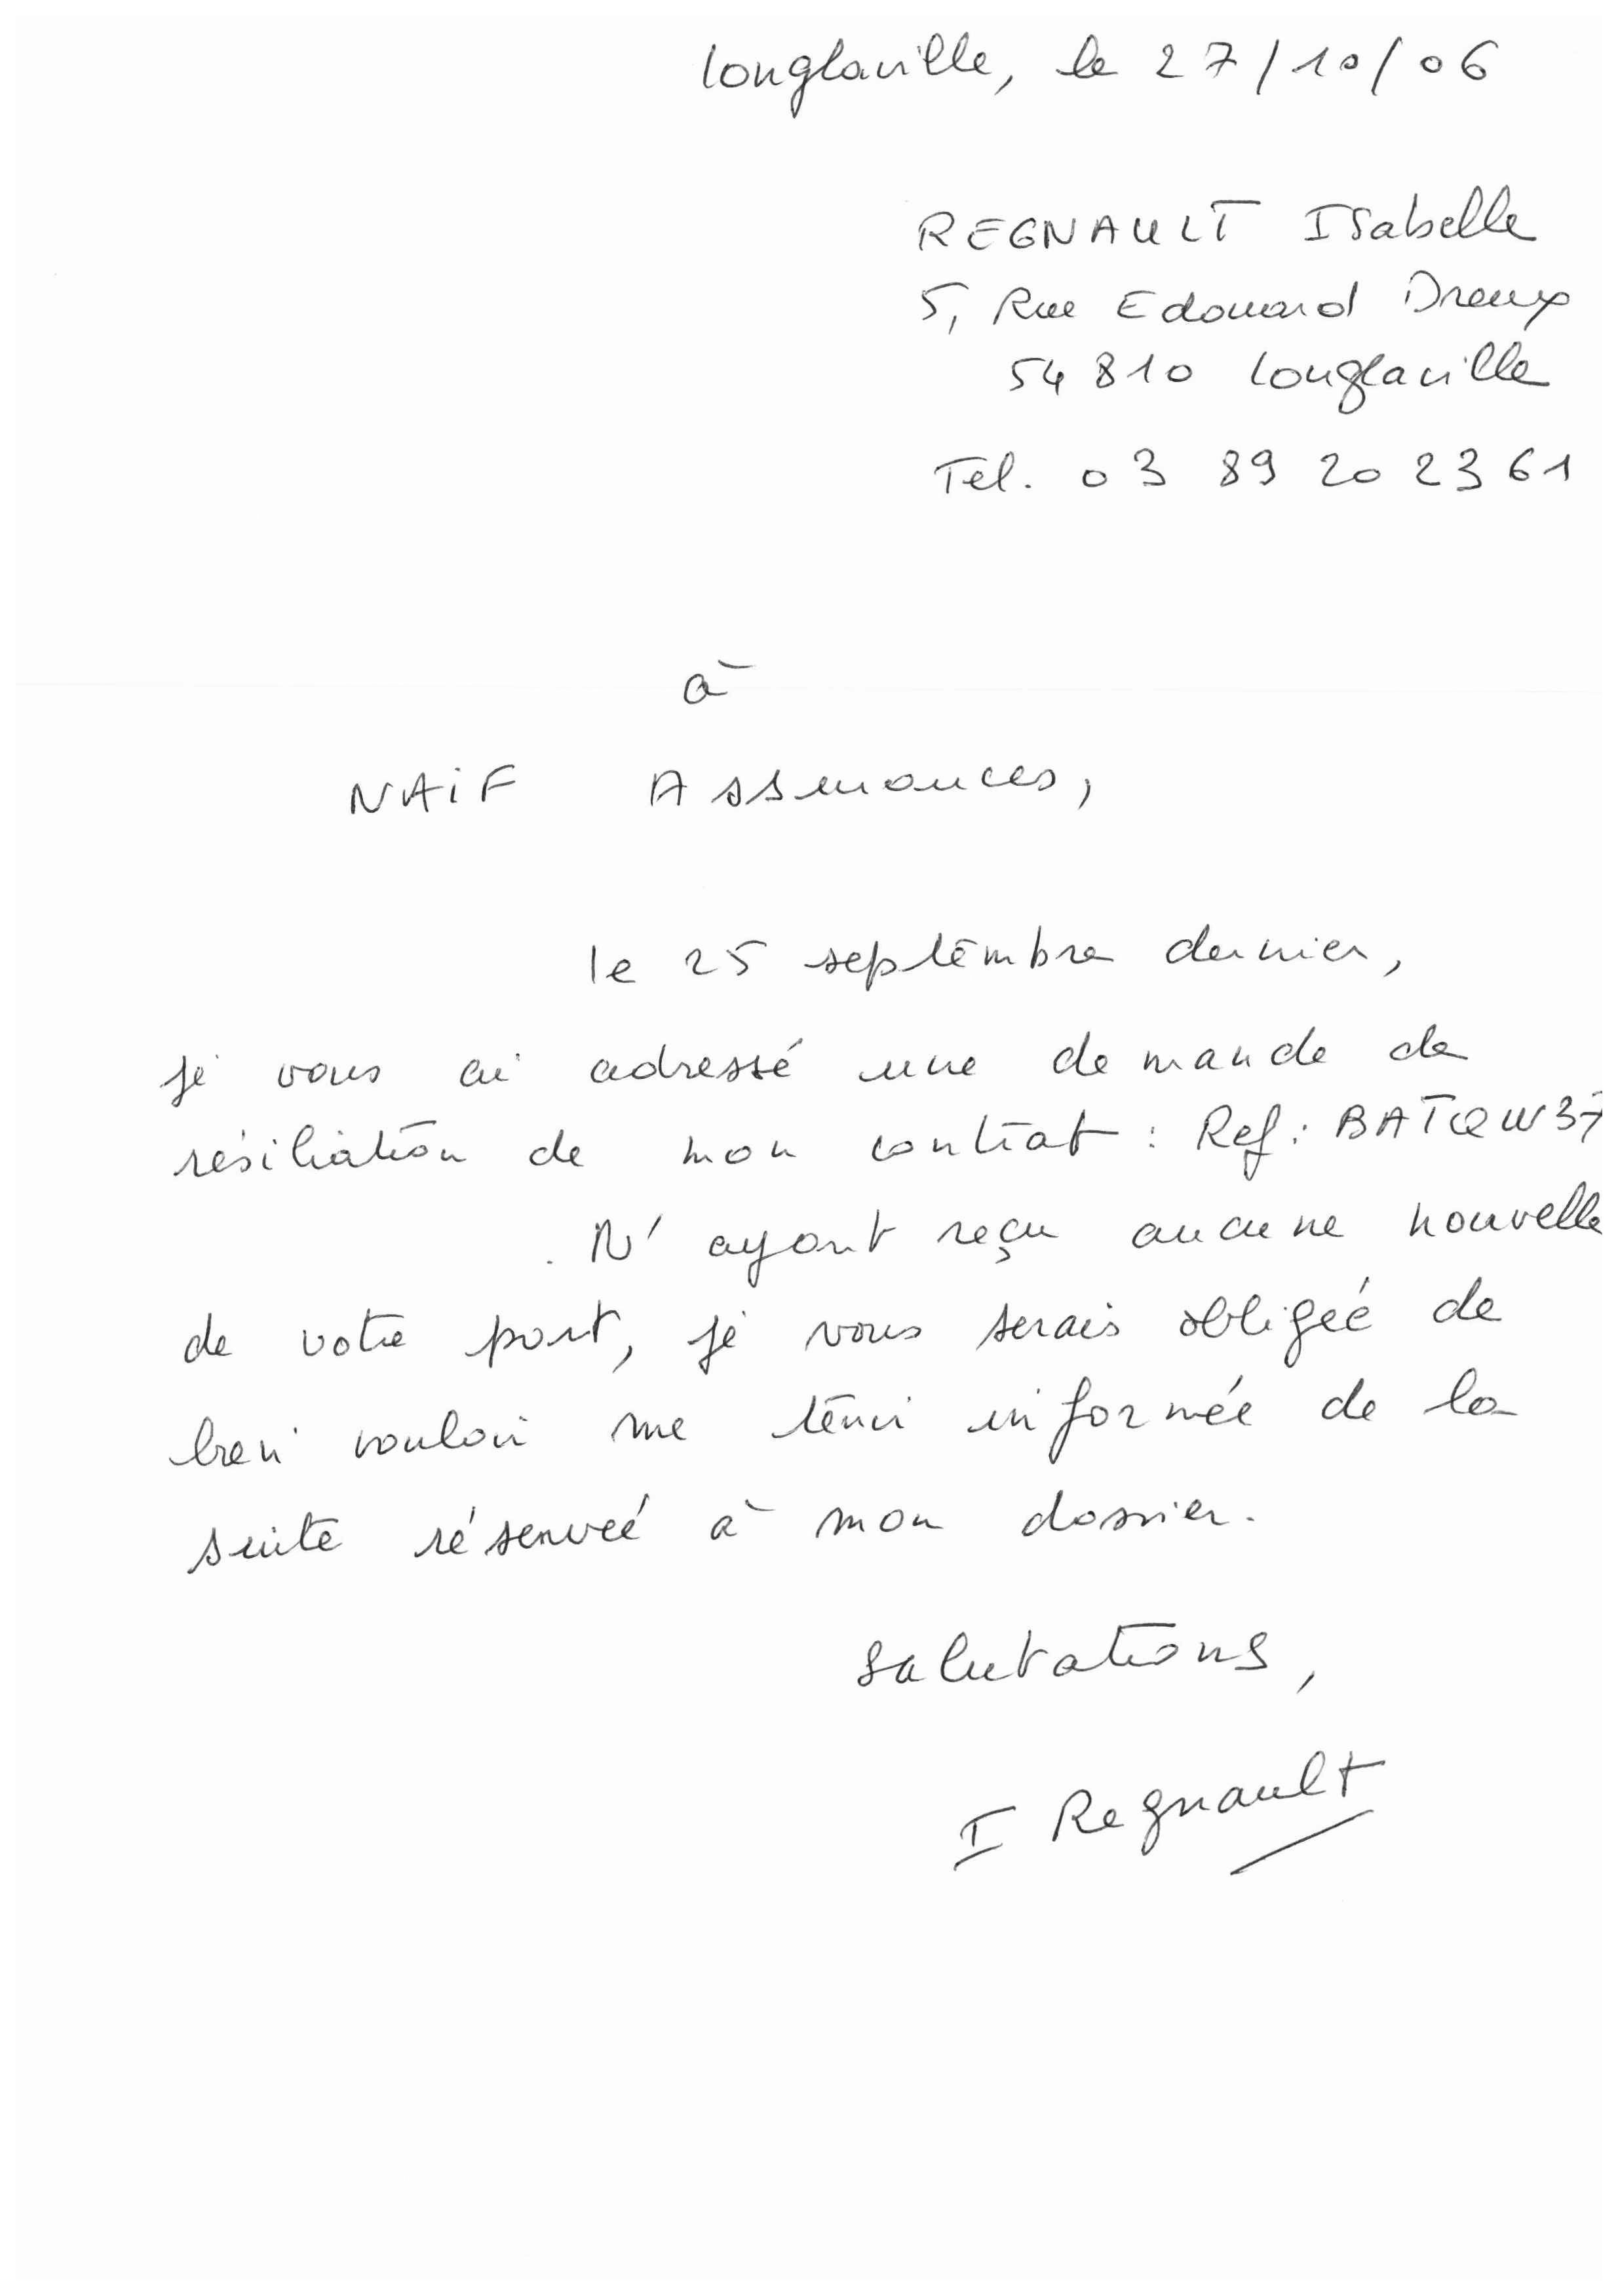 Longlaville, le 27/10/06
REGNAULT Isabelle
5, Rue Edouard Dreux
54 810 Longlaville
Tel. 03 89 20 23 61
à
NAiF Assurances,
le 25 septembre dernier,
je vous ai adressé une demande de
résiliation de mon contrat : Ref : BATQW37
N' ayant reçu aucune nouvelle
de votre part, je vous serais obligée de
bien vouloir me tenir informée de la
suite réservée à mon dossier.
Salutations,
I Regnault